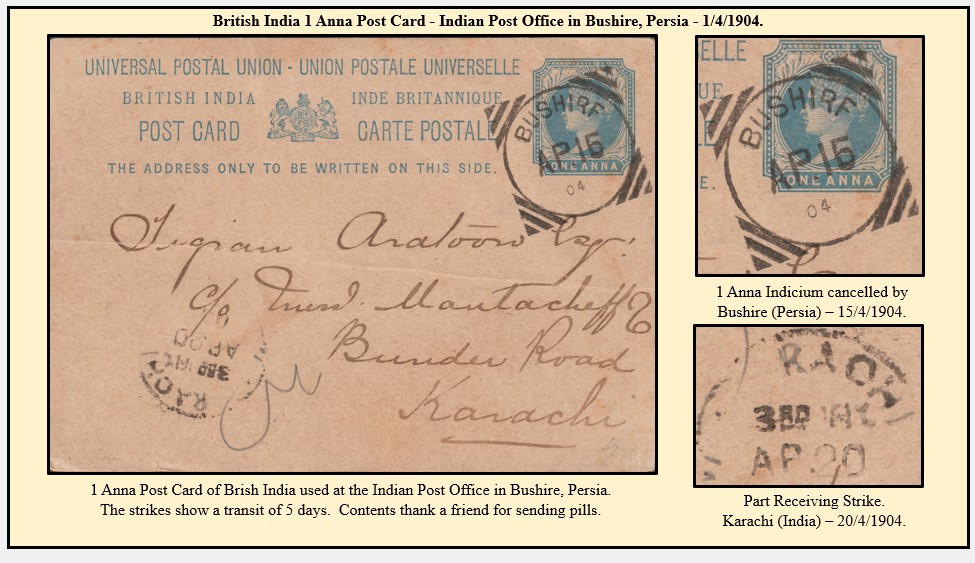 British India 1 Anna Post Card - Indian Post Office in Bushire, Persia - 1/4/1904.
UNIVERSAL POSTAL UNION - UNION POSTALE UNIVERSELLE
BRITISH INDIA INDE BRITANNIQUE
POST CARD CARTE POSTALE
THE ADDRESS ONLY TO BE WRITTEN ON THIS SIDE.
ONE ANNA
BUSHIRE
AP 15
04
Tigran Aratoon Esq.
c/o Messrs. Mantacheff &
Bunder Road
Karachi
RACH
AP 20
1 Anna Post Card of Brish India used at the Indian Post Office in Bushire, Persia.
The strikes show a transit of 5 days. Contents thank a friend for sending pills.
ELLE
UE
E.
BUSHIRE
AP 15
ONE ANNA
04
1 Anna Indicium cancelled by
Bushire (Persia) – 15/4/1904.
RACH
AP 20
Part Receiving Strike.
Karachi (India) – 20/4/1904.